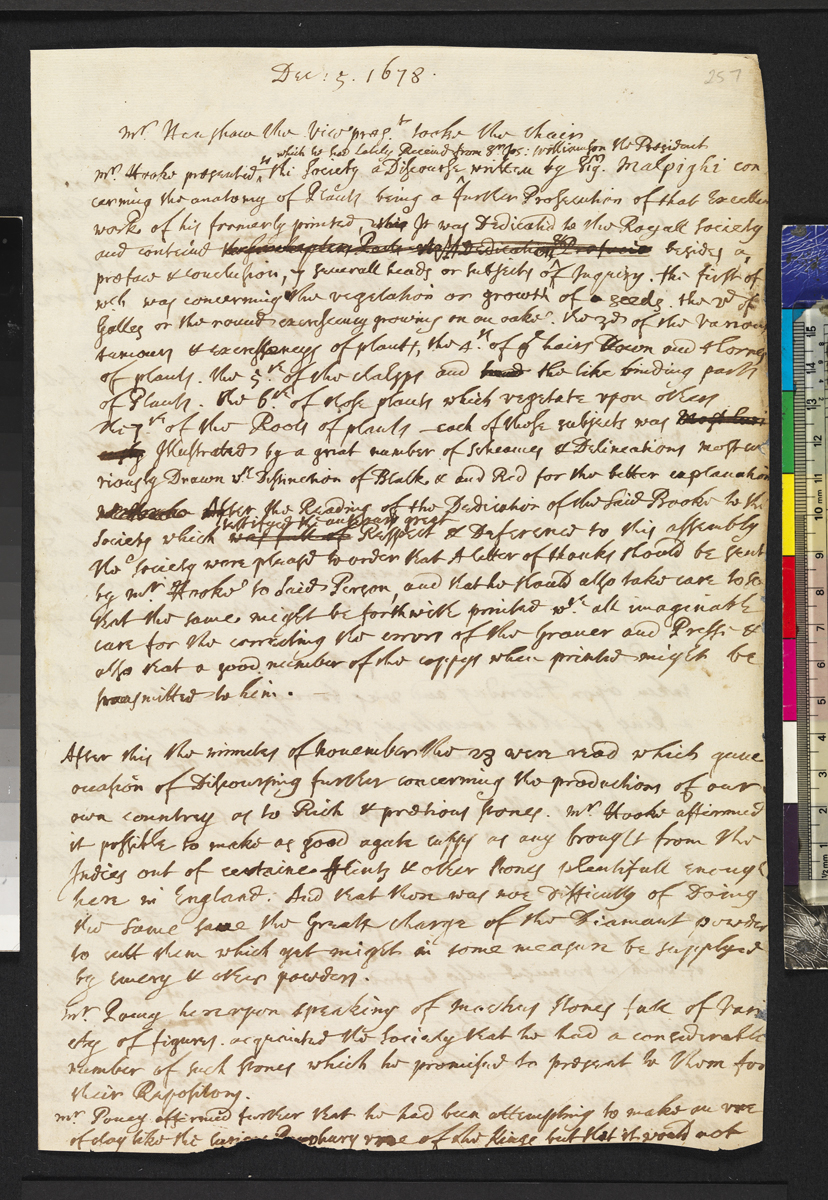 Dec: 5. 1678.
257
Mr. Henshaw the Vice pres.t tooke the chair
which he had lately Receiued from Sr. Jos: Williamson the President
Mr. Hooke presented to the Society a Discourse written by Sigr. Malpighi con
cerning the anatomy of Plants being a further Prosecution of that Excellen
worke of his formerly printed, this It was Dedicated to the Royall Society
and containd besides a
preface & conclusion, 7 severall heads or subjects of Inquiry. the first of
wch. was concerning the vegetation or growth of a seeds. the 2d of
Galles or the round excrescency growing on an oake. the 3d of the Various
tumours & excrescencys of plants, the 4th. of ye hairs and thornes
of plants. the 5th. of the claspes and the like binding parts
of Plants. the 6th. of those plants which vegetate vpon others
the 7th of the Roots of plants - each of those subjects was
Illustrated by a great number of scheames & Delineations most cu
riously Drawn wth Distinction of Black & and Red for the better explanation
After the Reading of the Dedication of the Said Booke to the
testifyed the authors great
Society which was full of Respect & Deference to this assembly
the Society were pleasd to order that A letter of thanks should be sent
by mr. Hooke to said Person, and that he should also take care to se
that the same might be forthwith printed wth. all imaginable
care for the correcting the errors of the Graver and Presse &
also that a good number of the coppys when printed might be
transmitted to him. -
After this the minutes of november the 28 were read which gaue
occasion of Discoursing further concerning the productions of our
own countrey as to Rich & pretious stones. Mr. Hooke affirmed
it possible to make as good agate cupps as any brought from the
Indies out of certaine flints & other stones plentifull enough
here in England. And that there was noe Difficulty of Doing
the same saue the Great charge of the Diamant powder
to cutt them which yet might in some measure be supplyed
by emery & other powders.
Mr. Povey herevpon speaking of mochus stones full of vari
ety of figures. acquainted the Society that he had a considerable
number of such stones which he promised to present to them for
their Repository.
Mr Povey affirmed further that he had been attempting to make an vrne
of clay like the vrne of the Kings but that it would not